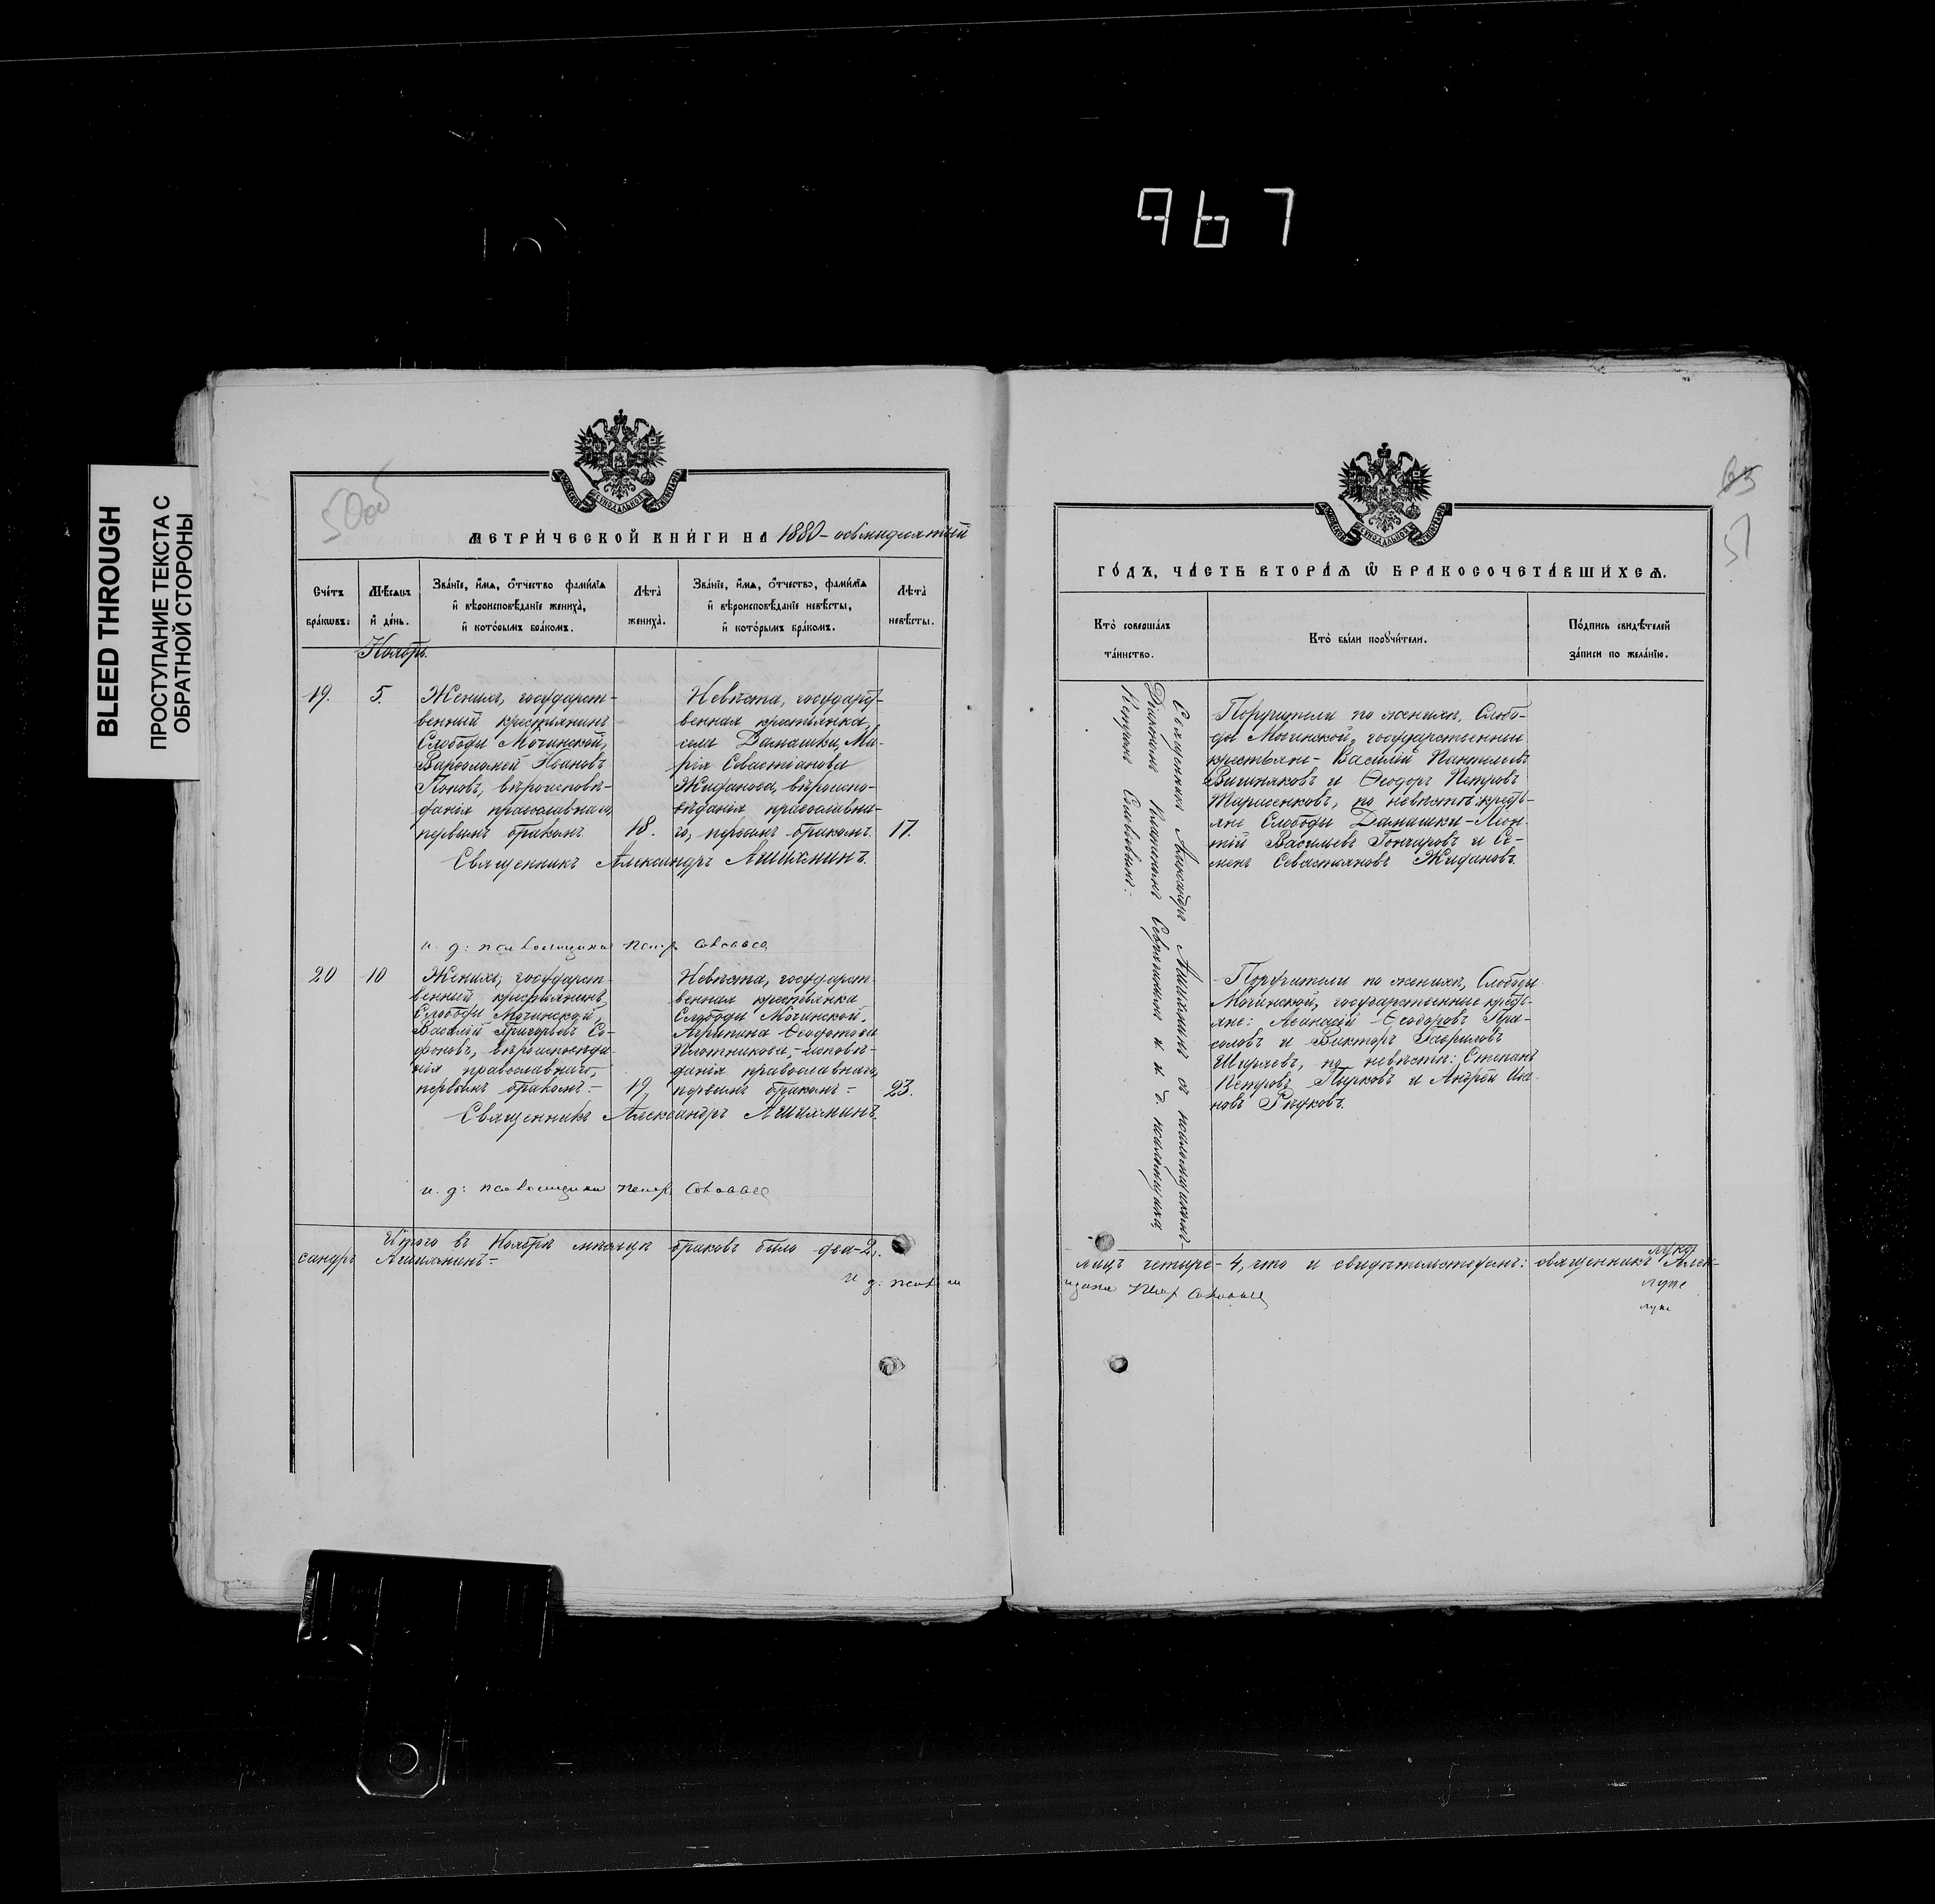 967
BLEED THROUGH
ПРОСТУПАНИЕ ТЕКСТА С
ОБРАТНОЙ СТОРОНЫ
50об
МЕТРИ́ЧЕСКОЙ КНИ́ГИ НА 1880-осьмидесятый
Сче́тъ бра́кѡвъ:
Мѣ́сѧцъ й де́нь.
Зва́нїе, и́мѧ, ѻ́тчество фами́лїѧ й вѣроисповѣ́данїе жениха̀, й кото́рымъ бра́комъ.
Лѣта̀ жениха̀.
Зва́нїе, и́мѧ, ѻ́тчество, фами́лїѧ й вѣроисповѣ́данїе невѣ́сты, й кото́рымъ бра́комъ.
Лѣта̀ невѣ́сты.
Ноябрь.
19. 5.
Женихъ, государст-
венный крестьянинъ
Слободы Мочинской,
Варѳоломей Ивановъ
Поповъ, вѣроисповѣ-
данія православнаго,
первымъ бракомъ. 18.
Невѣста, государст-
венная крестьянка,
села Думашки, Ма-
рія Севастіанова
Жиданова, вѣроиспо-
вѣданія православна-
го, первымъ бракомъ. 17.
Священникъ Александръ Ашихминъ.
и. д: псаломщика Петръ
20 10
Женихъ, государст-
венный крестьянинъ,
Слободы Мочинской,
Василій Григорьевъ Со-
фоновъ, вѣроисповѣда-
нія православнаго,
первымъ бракомъ- 19
Невѣста, государст-
венная крестьянка
Слободы Мочинской,
Агрипина Ѳеодотова
Плотникова,-исповѣ-
данія православнаго,
первымъ бракомъ- 23.
Священникъ Александръ Ашихминъ.
и. д: псаломщика Петръ
Итого въ Ноябрѣ мѣсяцѣ браковъ было два-2.
сандръ Ашихминъ-
и д: псалом
51
ГО́ДЪ, ЧА́СТЬ ВТОРА́Ѧ Ѡ БРАКОСОЧЕТА́ВШИХСѦ.
Кто̀ соверша́лъ та́инство.
Кто̀ бы́ли порꙋчи́тели.
По́дпись свидѣ́телей за́писи по жела́нїю.
Священникъ Александръ Ашихминъ съ псаломщикомъ-
Діакономъ и и. д. псаломщика,
Петромъ
Поручители по женихѣ, Слобо-
ды Мочинской, государственные
крестьяне- Василій Пантелеевъ
и Ѳеодоръ Петровъ
по невѣстѣ: кресть-
яне Слободы Думашки-Леон-
тій Васильевъ Гончаровъ и Се-
менъ Севастьяновъ Жидановъ.
Поручители по женихѣ, Слободы
Мочинской, государственные кресть-
яне: Аѳанасій Ѳеодоровъ
и Викторъ Гавриловъ
по невѣстѣ: Степанъ
Петровъ и Андрей Ива-
новъ
лицъ четыре-4, что и свидѣтельствуемъ: священникъ Алек-
щика Петр